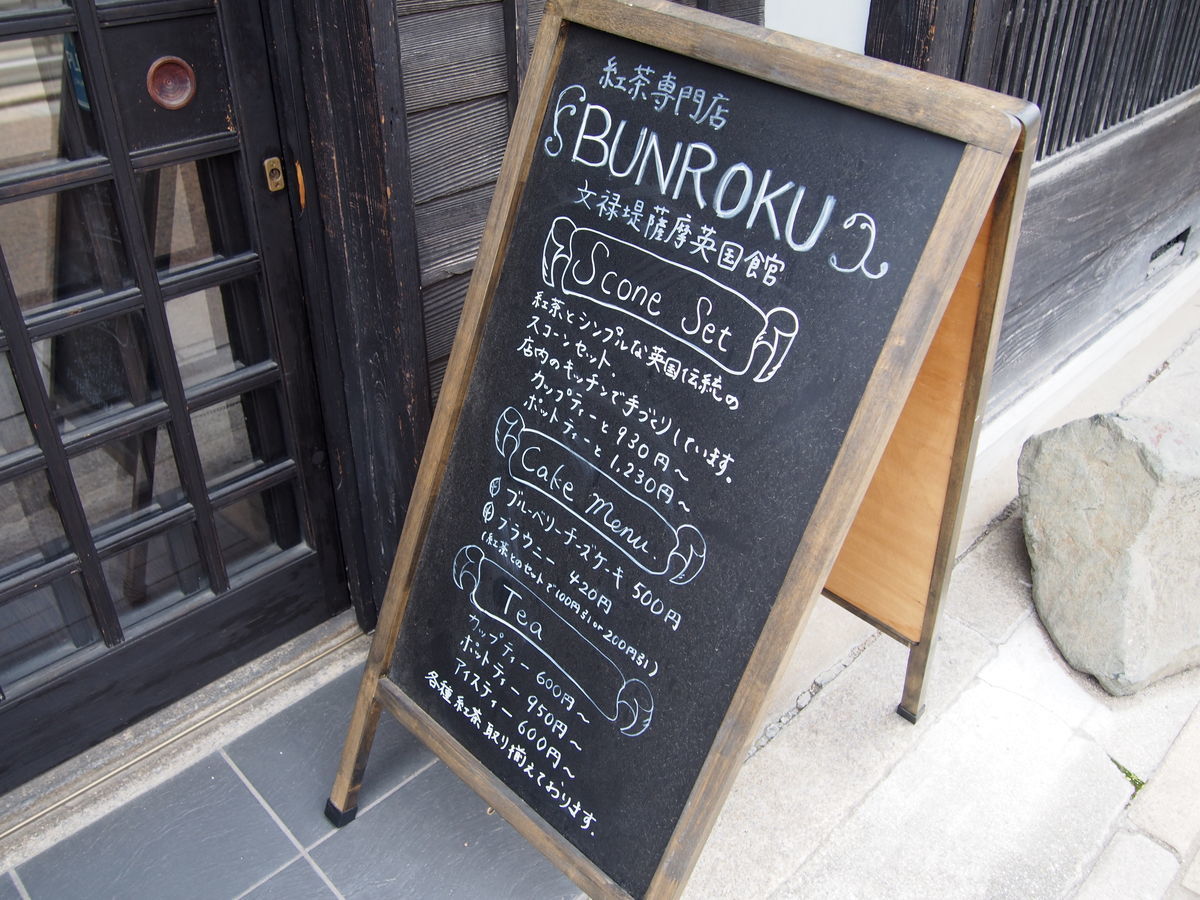 紅茶専門店
BUNROKU
文禄堤薩摩英国館
Scone Set
紅茶とシンプルな英国伝統の
スコーンセット.
店内のキッチンで手づくりしています。
カップティーと 930円〜
ポットティーと 1,230円〜
Cake Menu.
ブルーベリーチーズケーキ 500円
ブラウニー 420円
(紅茶とのセットで100円引or200円引)
Tea
カップティー 600円〜
ポットティー 950円〜
アイスティー 600円〜
各種紅茶、取り揃えております.